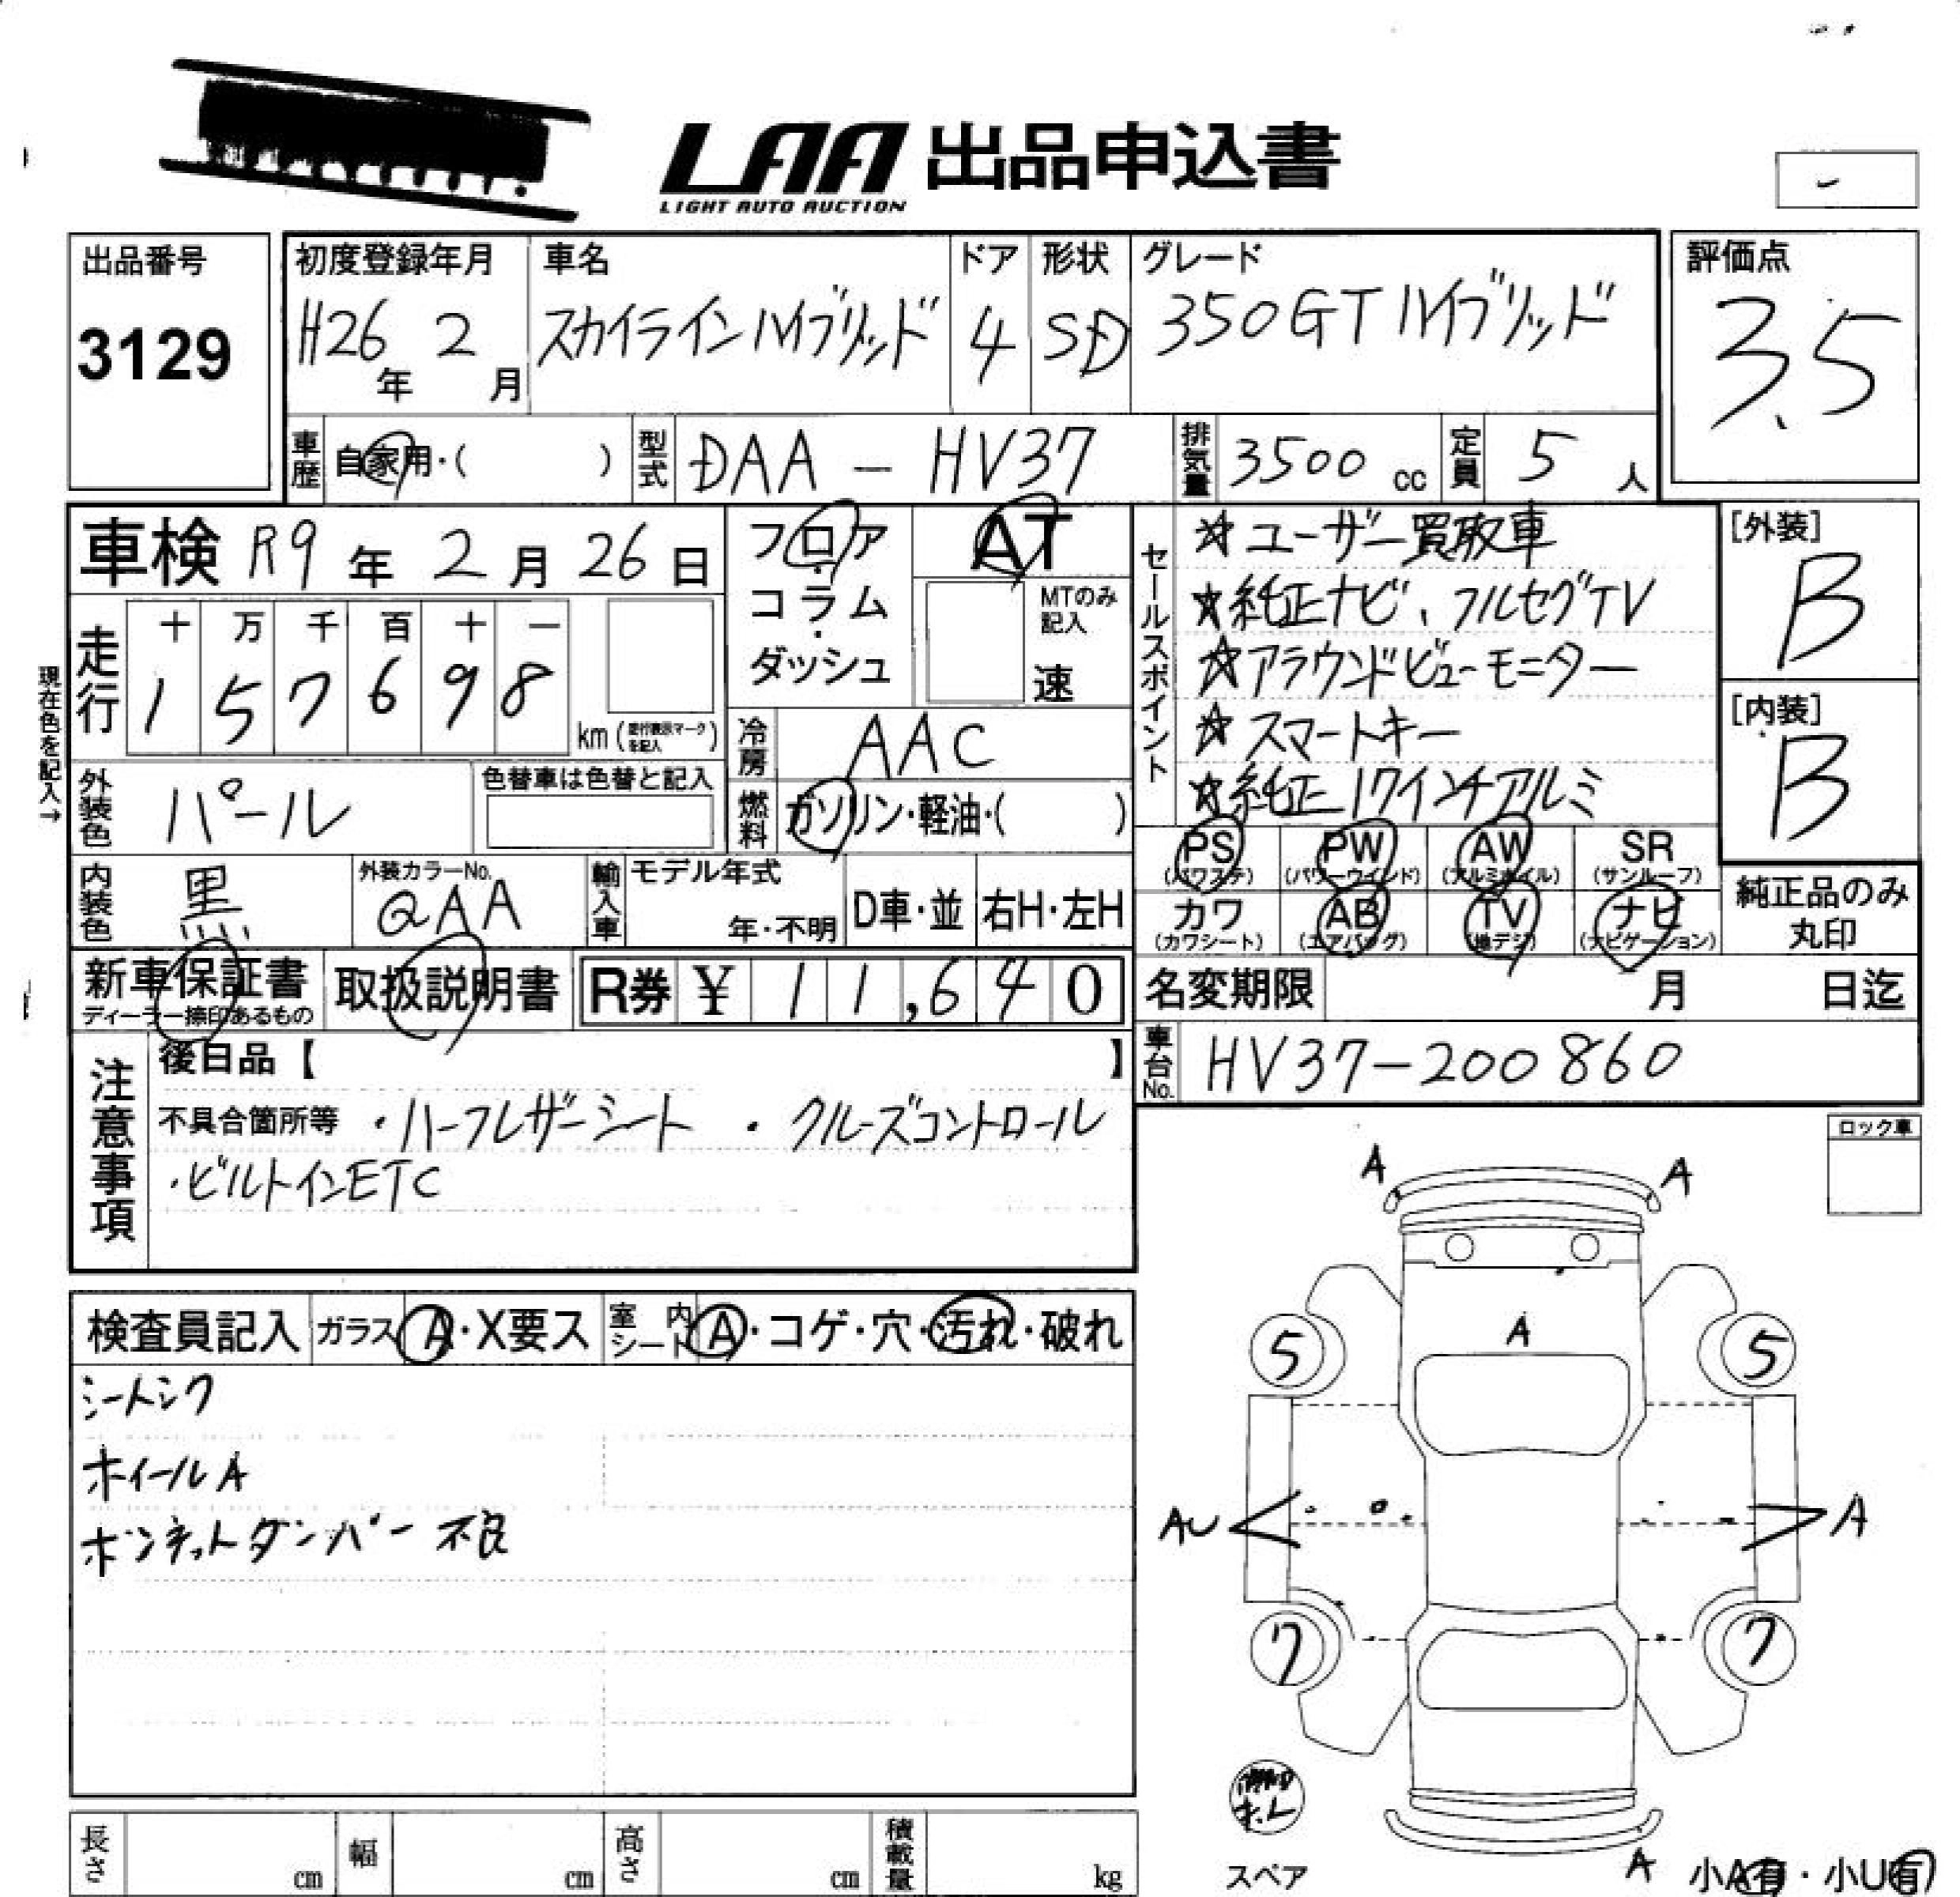 LAA 出品申込書
LIGHT AUTO AUCTION
出品番号
3129
初度登録年月
H26年 2月
車名
スカイラインハイブリッド
ドア
4
形状
SD
グレード
350GTハイブリッド
評価点
3.5
車歴 自家用・( )
型式 DAA-HV37
排気量 3500 cc
定員 5 人
車検 R9年 2月 26日
フロア・コラム・ダッシュ
AT
MTのみ記入
速
現在色を記入→
走行
十 万 千 百 十 一
1 5 7 6 9 8
km (走行表示マークを記入)
冷房 AAC
燃料 ガソリン・軽油・( )
外装色 パール
色替車は色替と記入
内装色 黒
外装カラーNo. QAA
輸入車 モデル年式 年・不明 D車・並 右H・左H
セールスポイント
☆ユーザー買取車
☆純正ナビ、フルセグTV
☆アラウンドビューモニター
☆スマートキー
☆純正17インチアルミ
[外装]
B
[内装]
B
PS PW AW SR
(パワステ) (パワーウインド) (アルミホイル) (サンルーフ)
カワ AB TV ナビ
(カワシート) (エアバッグ) (地デジ) (ナビゲーション)
純正品のみ丸印
新車保証書 取扱説明書 R券 ¥11,640
ディーラー捺印あるもの
名変期限 月 日迄
車台No. HV37-200860
注意事項
後日品【 】
不具合箇所等 ・ハーフレザーシート ・クルーズコントロール
・ビルトインETC
ロック車
検査員記入 ガラス A・X要ス 室内シート A・コゲ・穴・汚れ・破れ
シートシワ
ホイールA
ボンネットダンパー不良
A A
A
5 5
AU A
7 7
スペア
A
小A有・小U有
長さ cm 幅 cm 高さ cm 積載量 kg